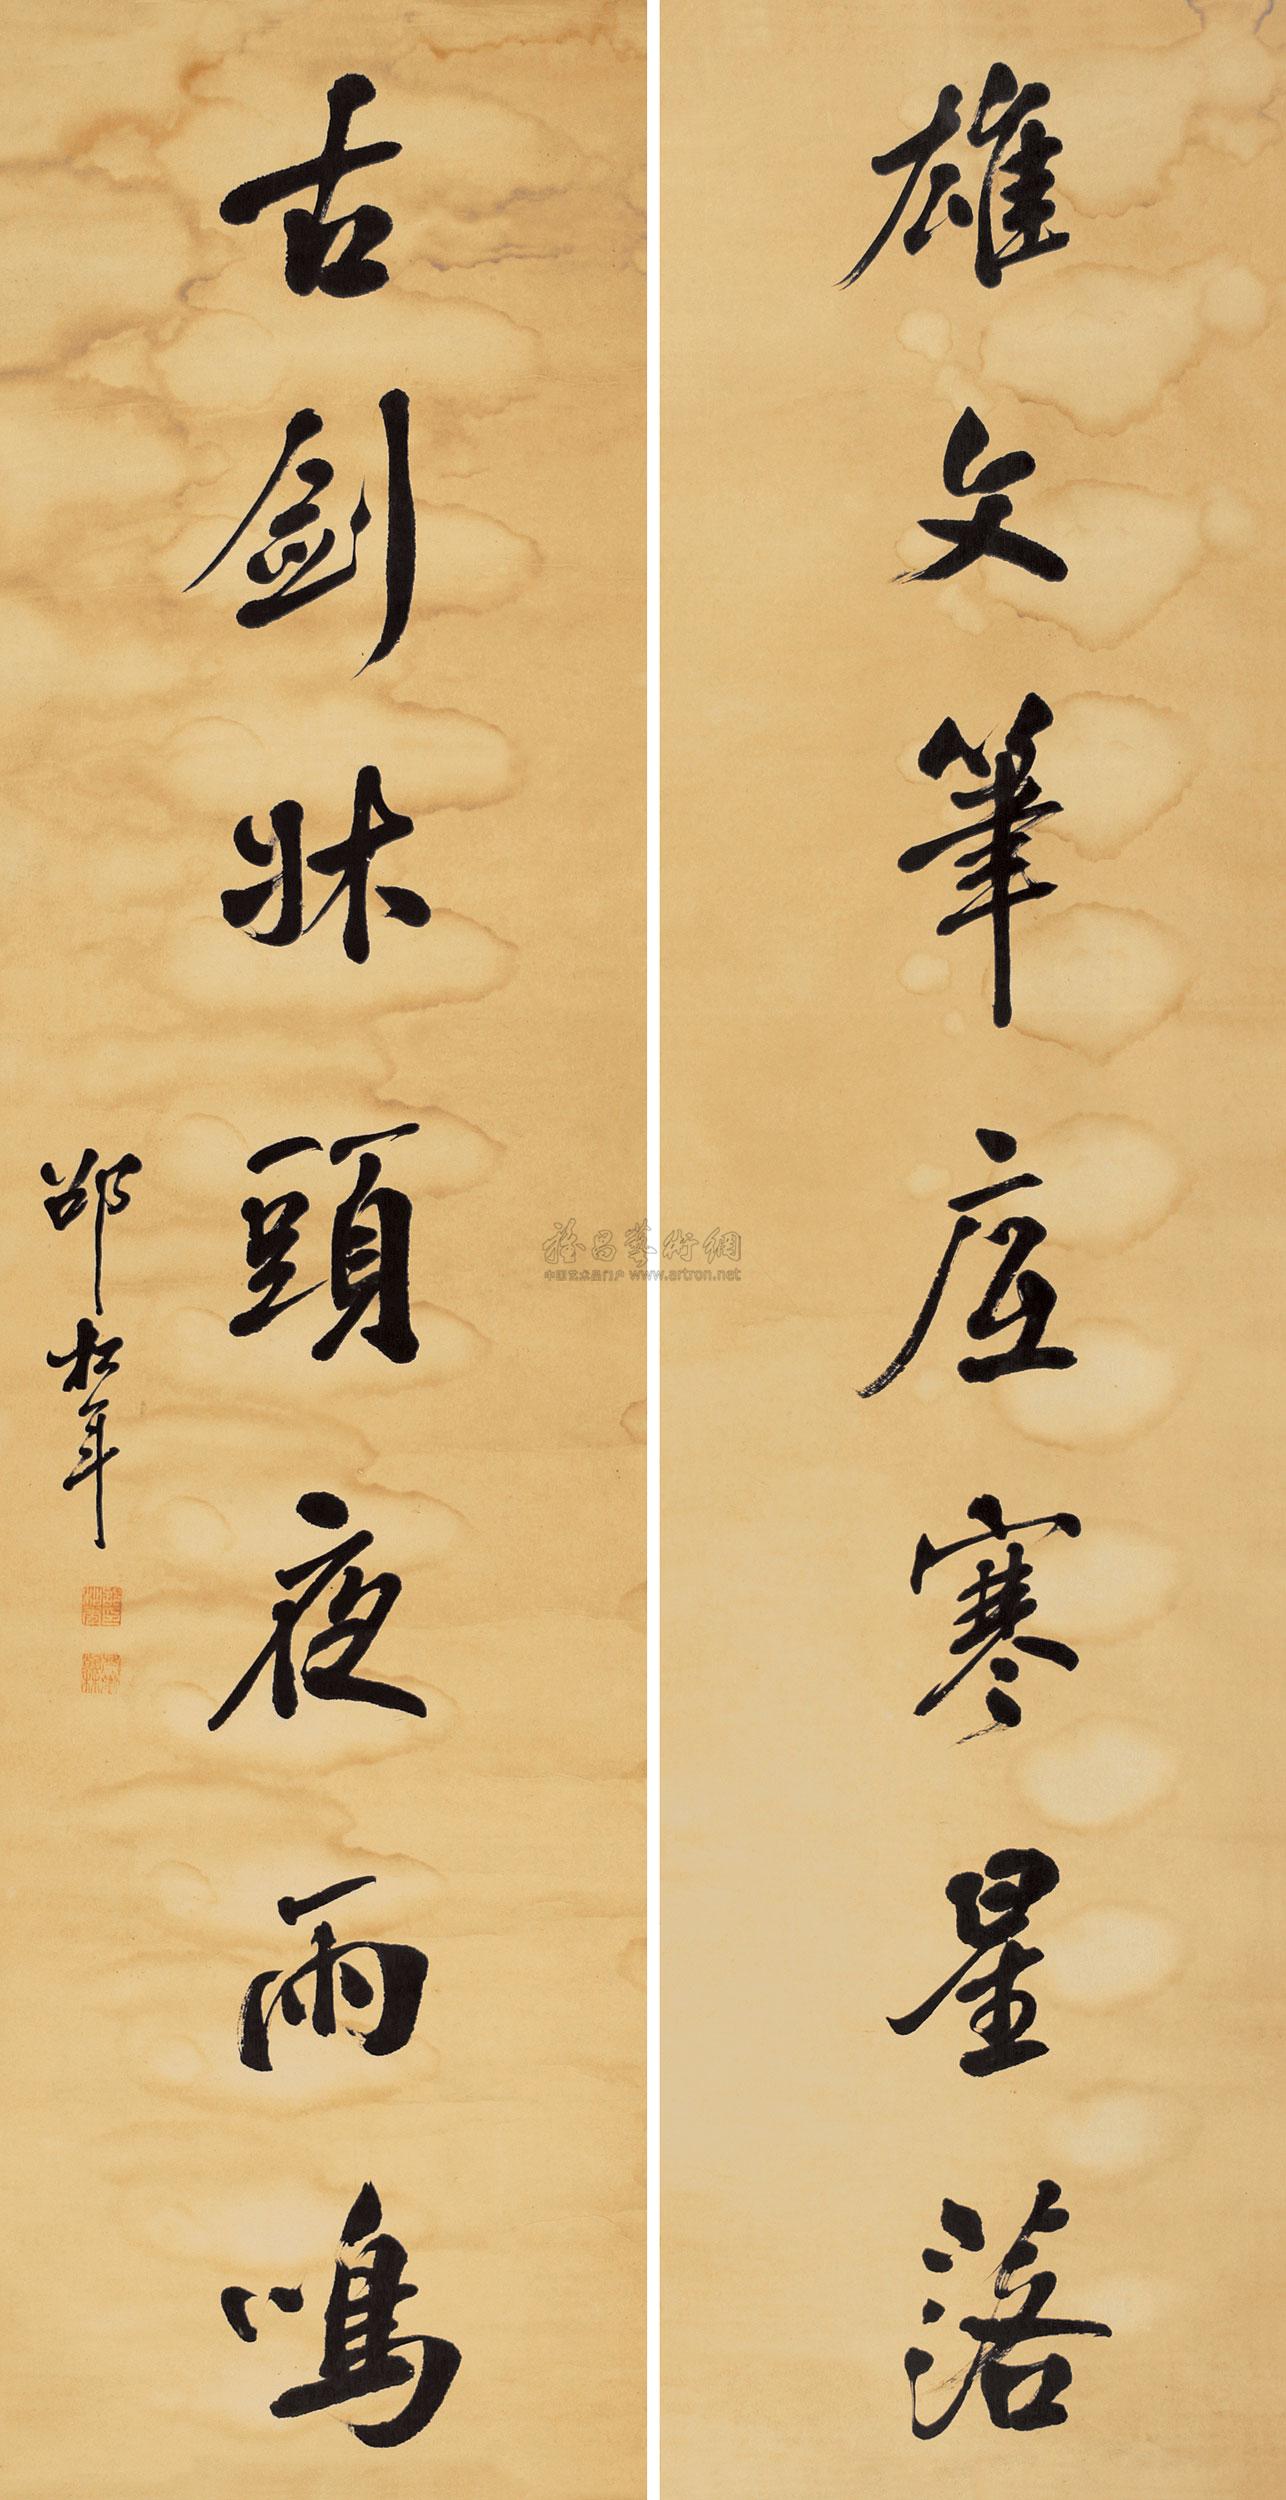 雄文筆底寒星落
古劍牀頭夜雨鳴
邵松年
雅昌藝術網
中国艺术品门户 www.artron.net